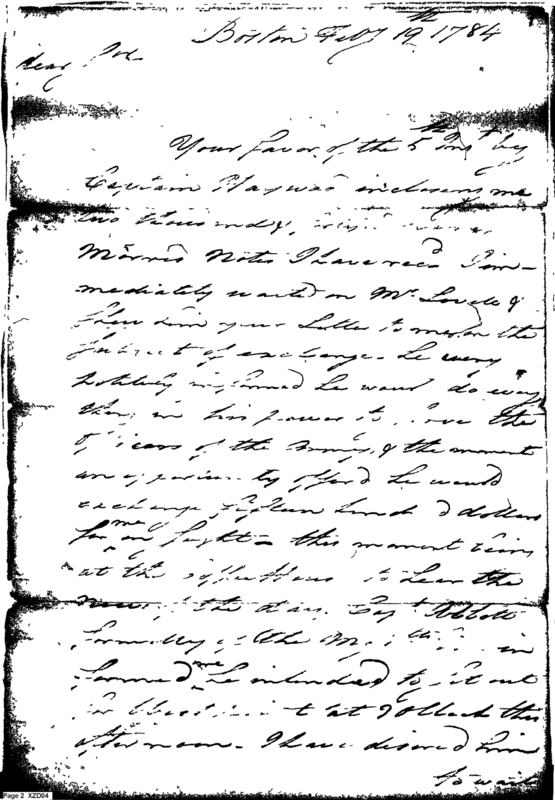 Boston Feby 19th 1784
dear Sir
Your favor of the 5th Inst by
Captain Haywood inclosing me
two thousand &
Morris's Notes I have recd I im-
mediately waited on Mr Lovell &
shew him your Letter to me on the
subject of exchange. he very
politely informed he would do every
thing in his power to the
officers of the Army, & the moment
an opportunity offerd he would
exchange fifteen hundd dollars
for me on sight = this moment being
at the to hear the
news of the day. Capt Abbott
formerly of the in
formed me he intended to set out
for at 3 oClock this
afternoon. I have desired him
to wait
Page 2 XZD04